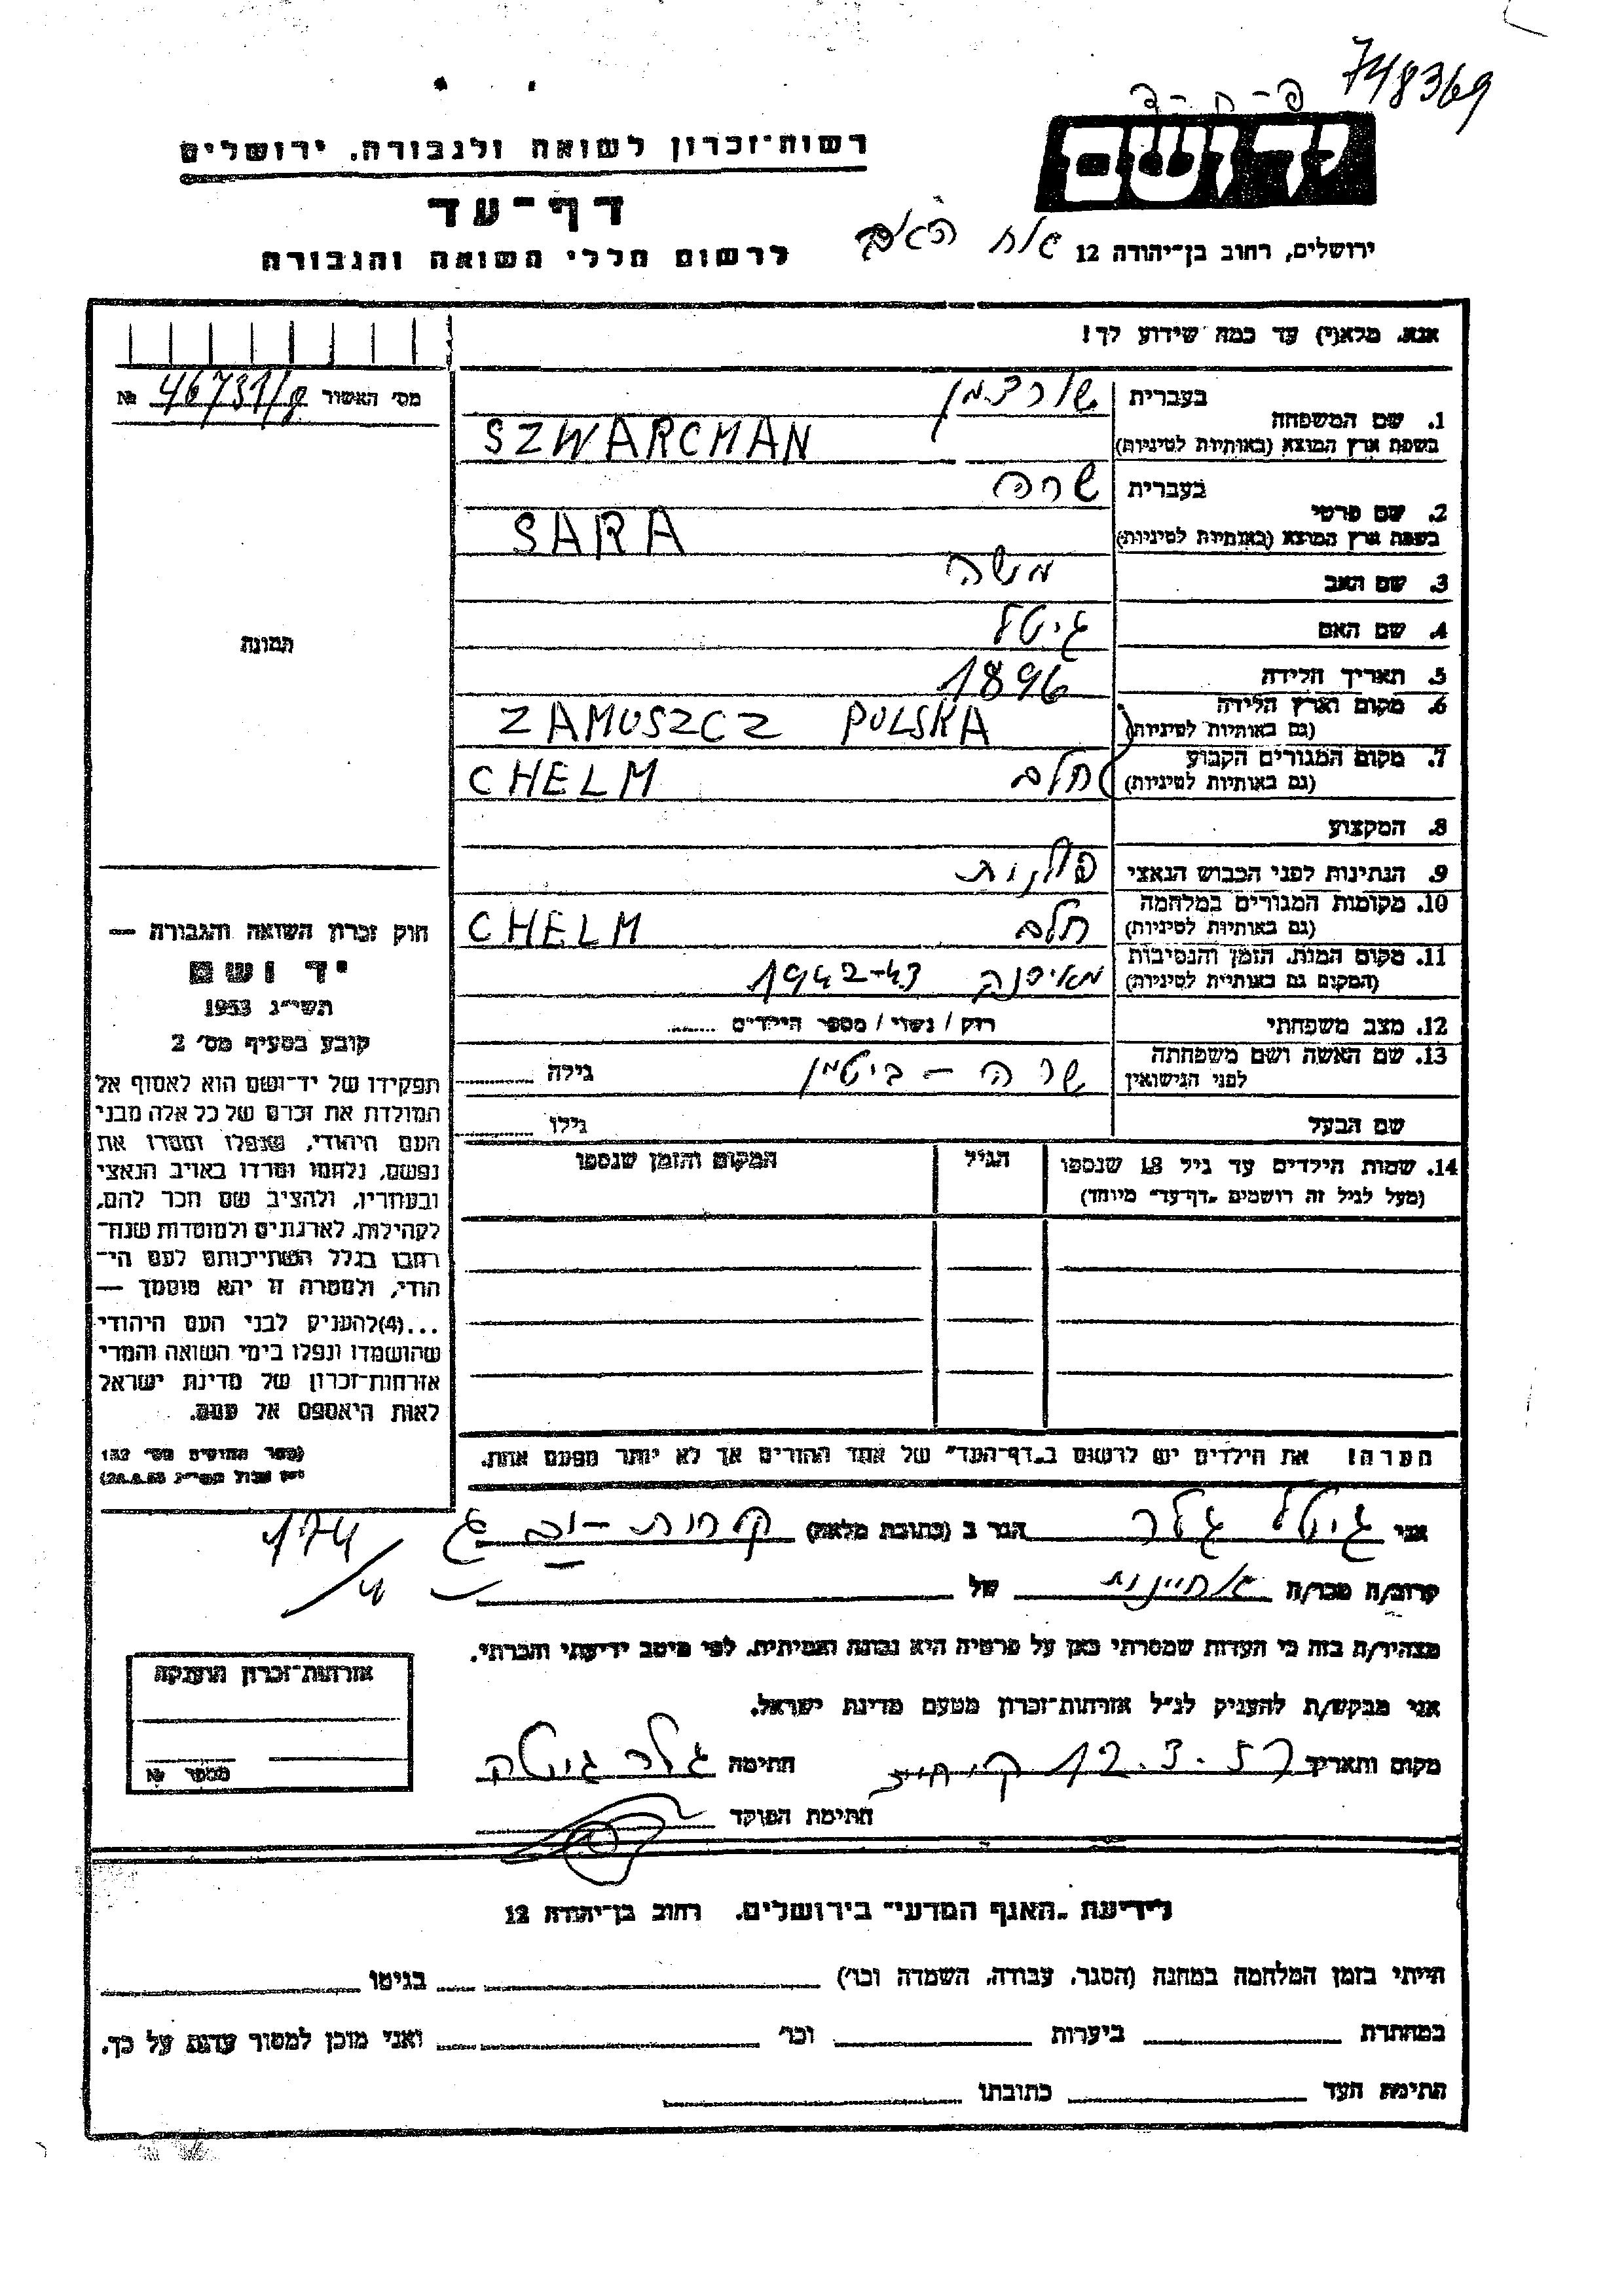 748369
רשות־זכרון לשואה ולגבורה, ירושלים
יד ושם
דף־עד
ירושלים, רחוב בן־יהודה 12
לרשום חללי השואה והגבורה
אנא, מלא(י) עד כמה שידוע לך!
מס׳ האשור 46731/8 №
1. שם המשפחה
בעברית שורצמן
בשפת ארץ המוצא (באותיות לטיניות) SZWARCMAN
2. שם פרטי
בעברית שרה
בשפת ארץ המוצא (באותיות לטיניות) SARA
3. שם האב משה
4. שם האם גיטל
תמונה
5. תאריך הלידה 1896
6. מקום וארץ הלידה
(גם באותיות לטיניות) ZAMUSZCZ POLSKA
7. מקום המגורים הקבוע
(גם באותיות לטיניות) חלם CHELM
8. המקצוע
9. הנתינות לפני הכבוש הנאצי פולנית
10. מקומות המגורים במלחמה
(גם באותיות לטיניות) חלם CHELM
11. מקום המות, הזמן והנסיבות
(המקום גם באותיות לטיניות) 1942-43
12. מצב משפחתי רווק / נשוי / מספר הילדים
13. שם האשה ושם משפחתה
לפני הנישואין שרה - ביטמן גילה
שם הבעל גילו
14. שמות הילדים עד גיל 18 שנספו
(מעל לגיל זה רושמים „דף־עד״ מיוחד)
הגיל
המקום והזמן שנספו
הערה! את הילדים יש לרשום ב„דף־העד״ של אחד ההורים אך לא יותר מפעם אחת.
חוק זכרון השואה והגבורה —
יד ושם
תשי״ג 1953
קובע בסעיף מס׳ 2
תפקידו של יד־ושם הוא לאסוף אל
המולדת את זכרם של כל אלה מבני
העם היהודי, שנפלו ומסרו את
נפשם, נלחמו ומרדו באויב הנאצי
ובעוזריו, ולהציב שם וזכר להם,
לקהילות, לארגונים ולמוסדות שנח־
רבו בגלל השתייכותם לעם הי־
הודי, ולמטרה זו יהא מוסמך —
...(4) להעניק לבני העם היהודי
שהושמדו ונפלו בימי השואה והמרי
אזרחות־זכרון של מדינת ישראל
לאות היאספם אל עמם.
(ספר החוקים מס׳ 132
אני גיטל גלר הגר ב (כתובת מלאה) קרית -ים ג
174/4
קרוב/ה מכר/ה אחיינות של
מצהיר/ה בזה כי העדות שמסרתי כאן על פרטיה היא נכונה ואמיתית, לפי מיטב ידיעתי והכרתי.
אני מבקש/ת להעניק לנ״ל אזרחות־זכרון מטעם מדינת ישראל.
מקום ותאריך 12.3.57 חתימה גלר גיטלה
חתימת הפוקד
אזרחות־זכרון הוענקה
מספר №
לידיעת „האגף המדעי״ בירושלים, רחוב בן־יהודה 12
הייתי בזמן המלחמה במחנה (הסגר, עבודה, השמדה וכו׳) בגיטו
במחתרת ביערות וכו׳ ואני מוכן למסור עדות על כך.
חתימת העד כתובתו